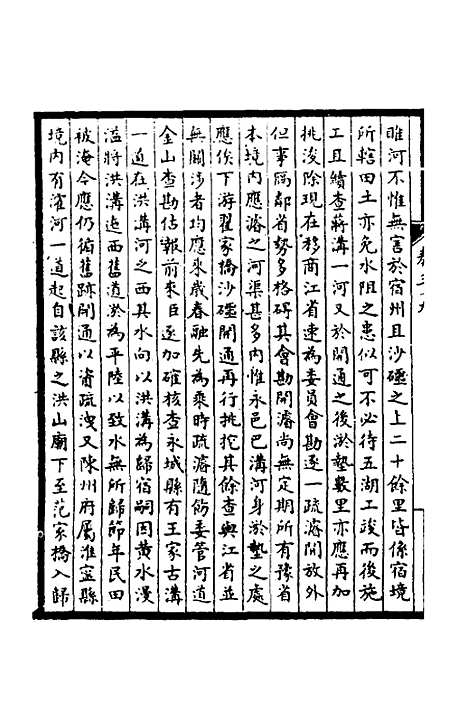 睢河不惟無害於宿州且沙礓之上二十餘里皆係宿境
所轄田土亦免水阻之患似可不必待五湖工竣而後施
工且續查蔣溝一河又於開通之後淤墊數里亦應再加
挑浚除現在移商江省速為委員會勘逐一疏濬開放外
但事隔鄰省勢多格碍其會勘開濬尚無定期所有豫省
本境內應濬之河渠甚多内惟永邑巴溝河身淤墊之處
應俟下游翟家橋沙礓開通再行挑挖其餘查與江省並
無關涉者均應來歲春融先為乘時疏濬隨飭委管河道
金山查勘估報前來臣逐加確核查永城縣有王家古溝
一道在洪溝河之西其水向以洪溝為歸宿嗣因黃水漫
溢將洪溝迤西舊道淤為平陸以致水無所歸節年民田
被淹今應仍循舊跡開通以資疏洩又陳州府屬淮寧縣
境内有濯河一道起自該縣之洪山廟下至范家橋入歸